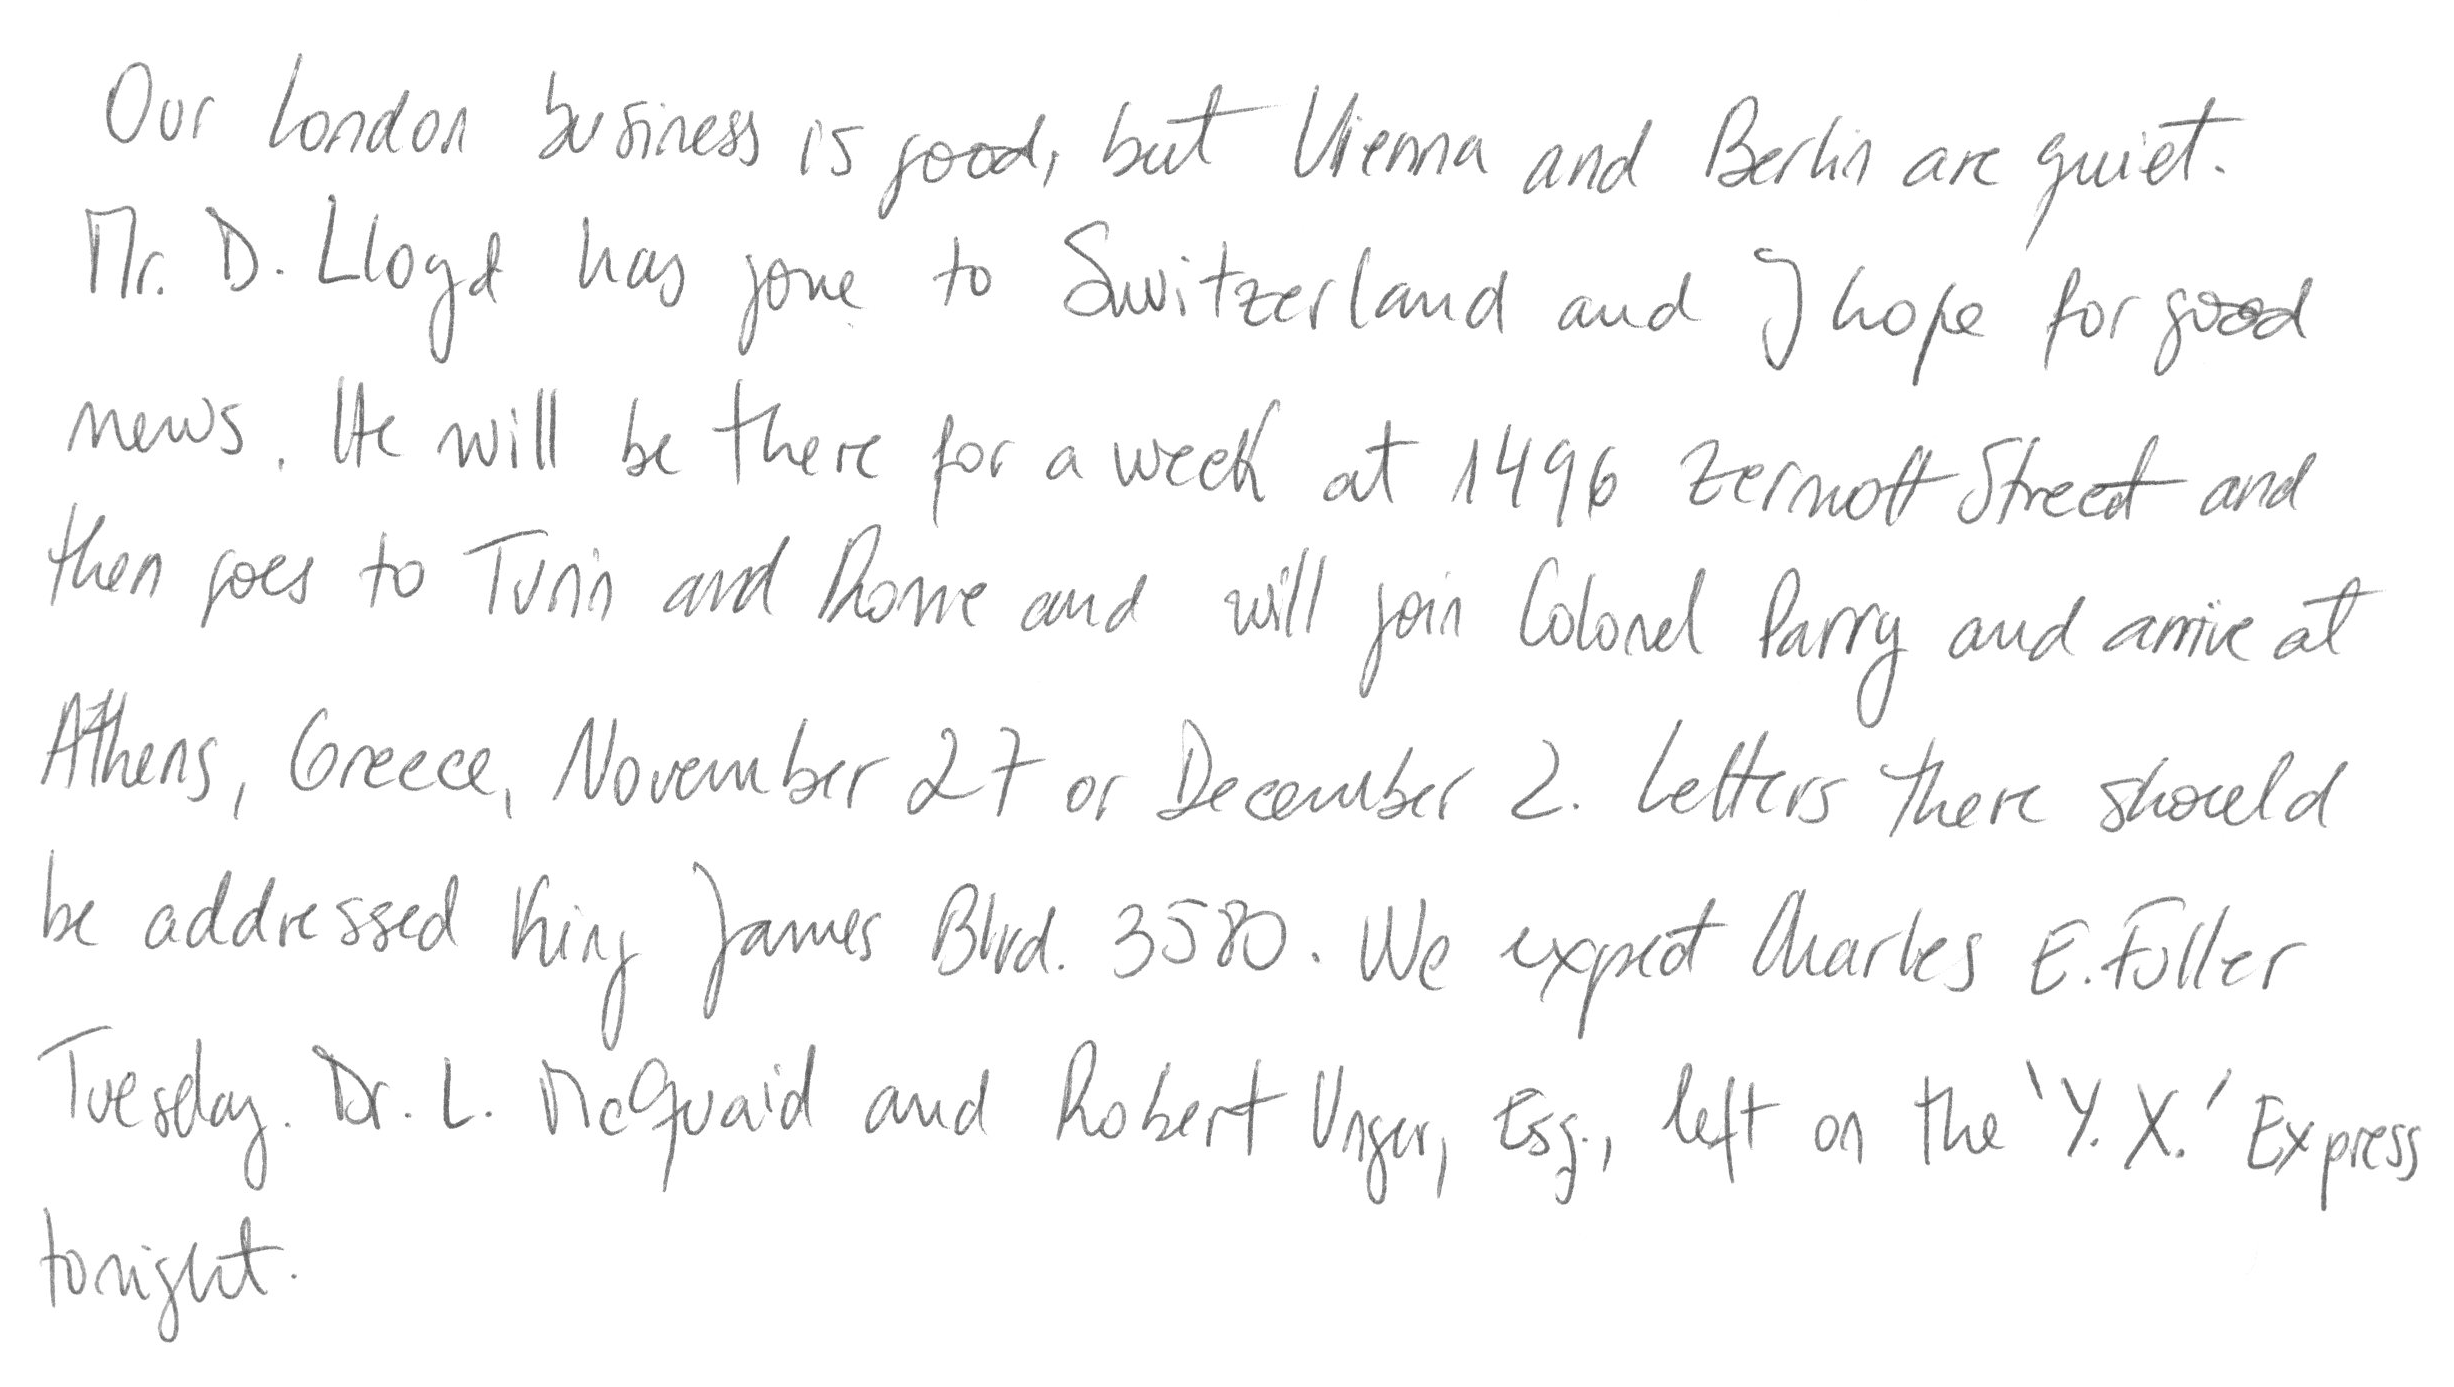 Our London business is good, but Vienna and Berlin are quiet.
Mr. D. Lloyd has gone to Switzerland and I hope for good
news. He will be there for a week at 1496 Zermott Street and
then goes to Turin and Rome and will join Colonel Parry and arrive at
Athens, Greece, November 27 or December 2. Letters there should
be addressed King James Blvd. 3580. We expect Charles E. Fuller
Tuesday. Dr. L. McQuaid and Robert Unger, Esq., left on the 'Y. X.' Express
tonight.